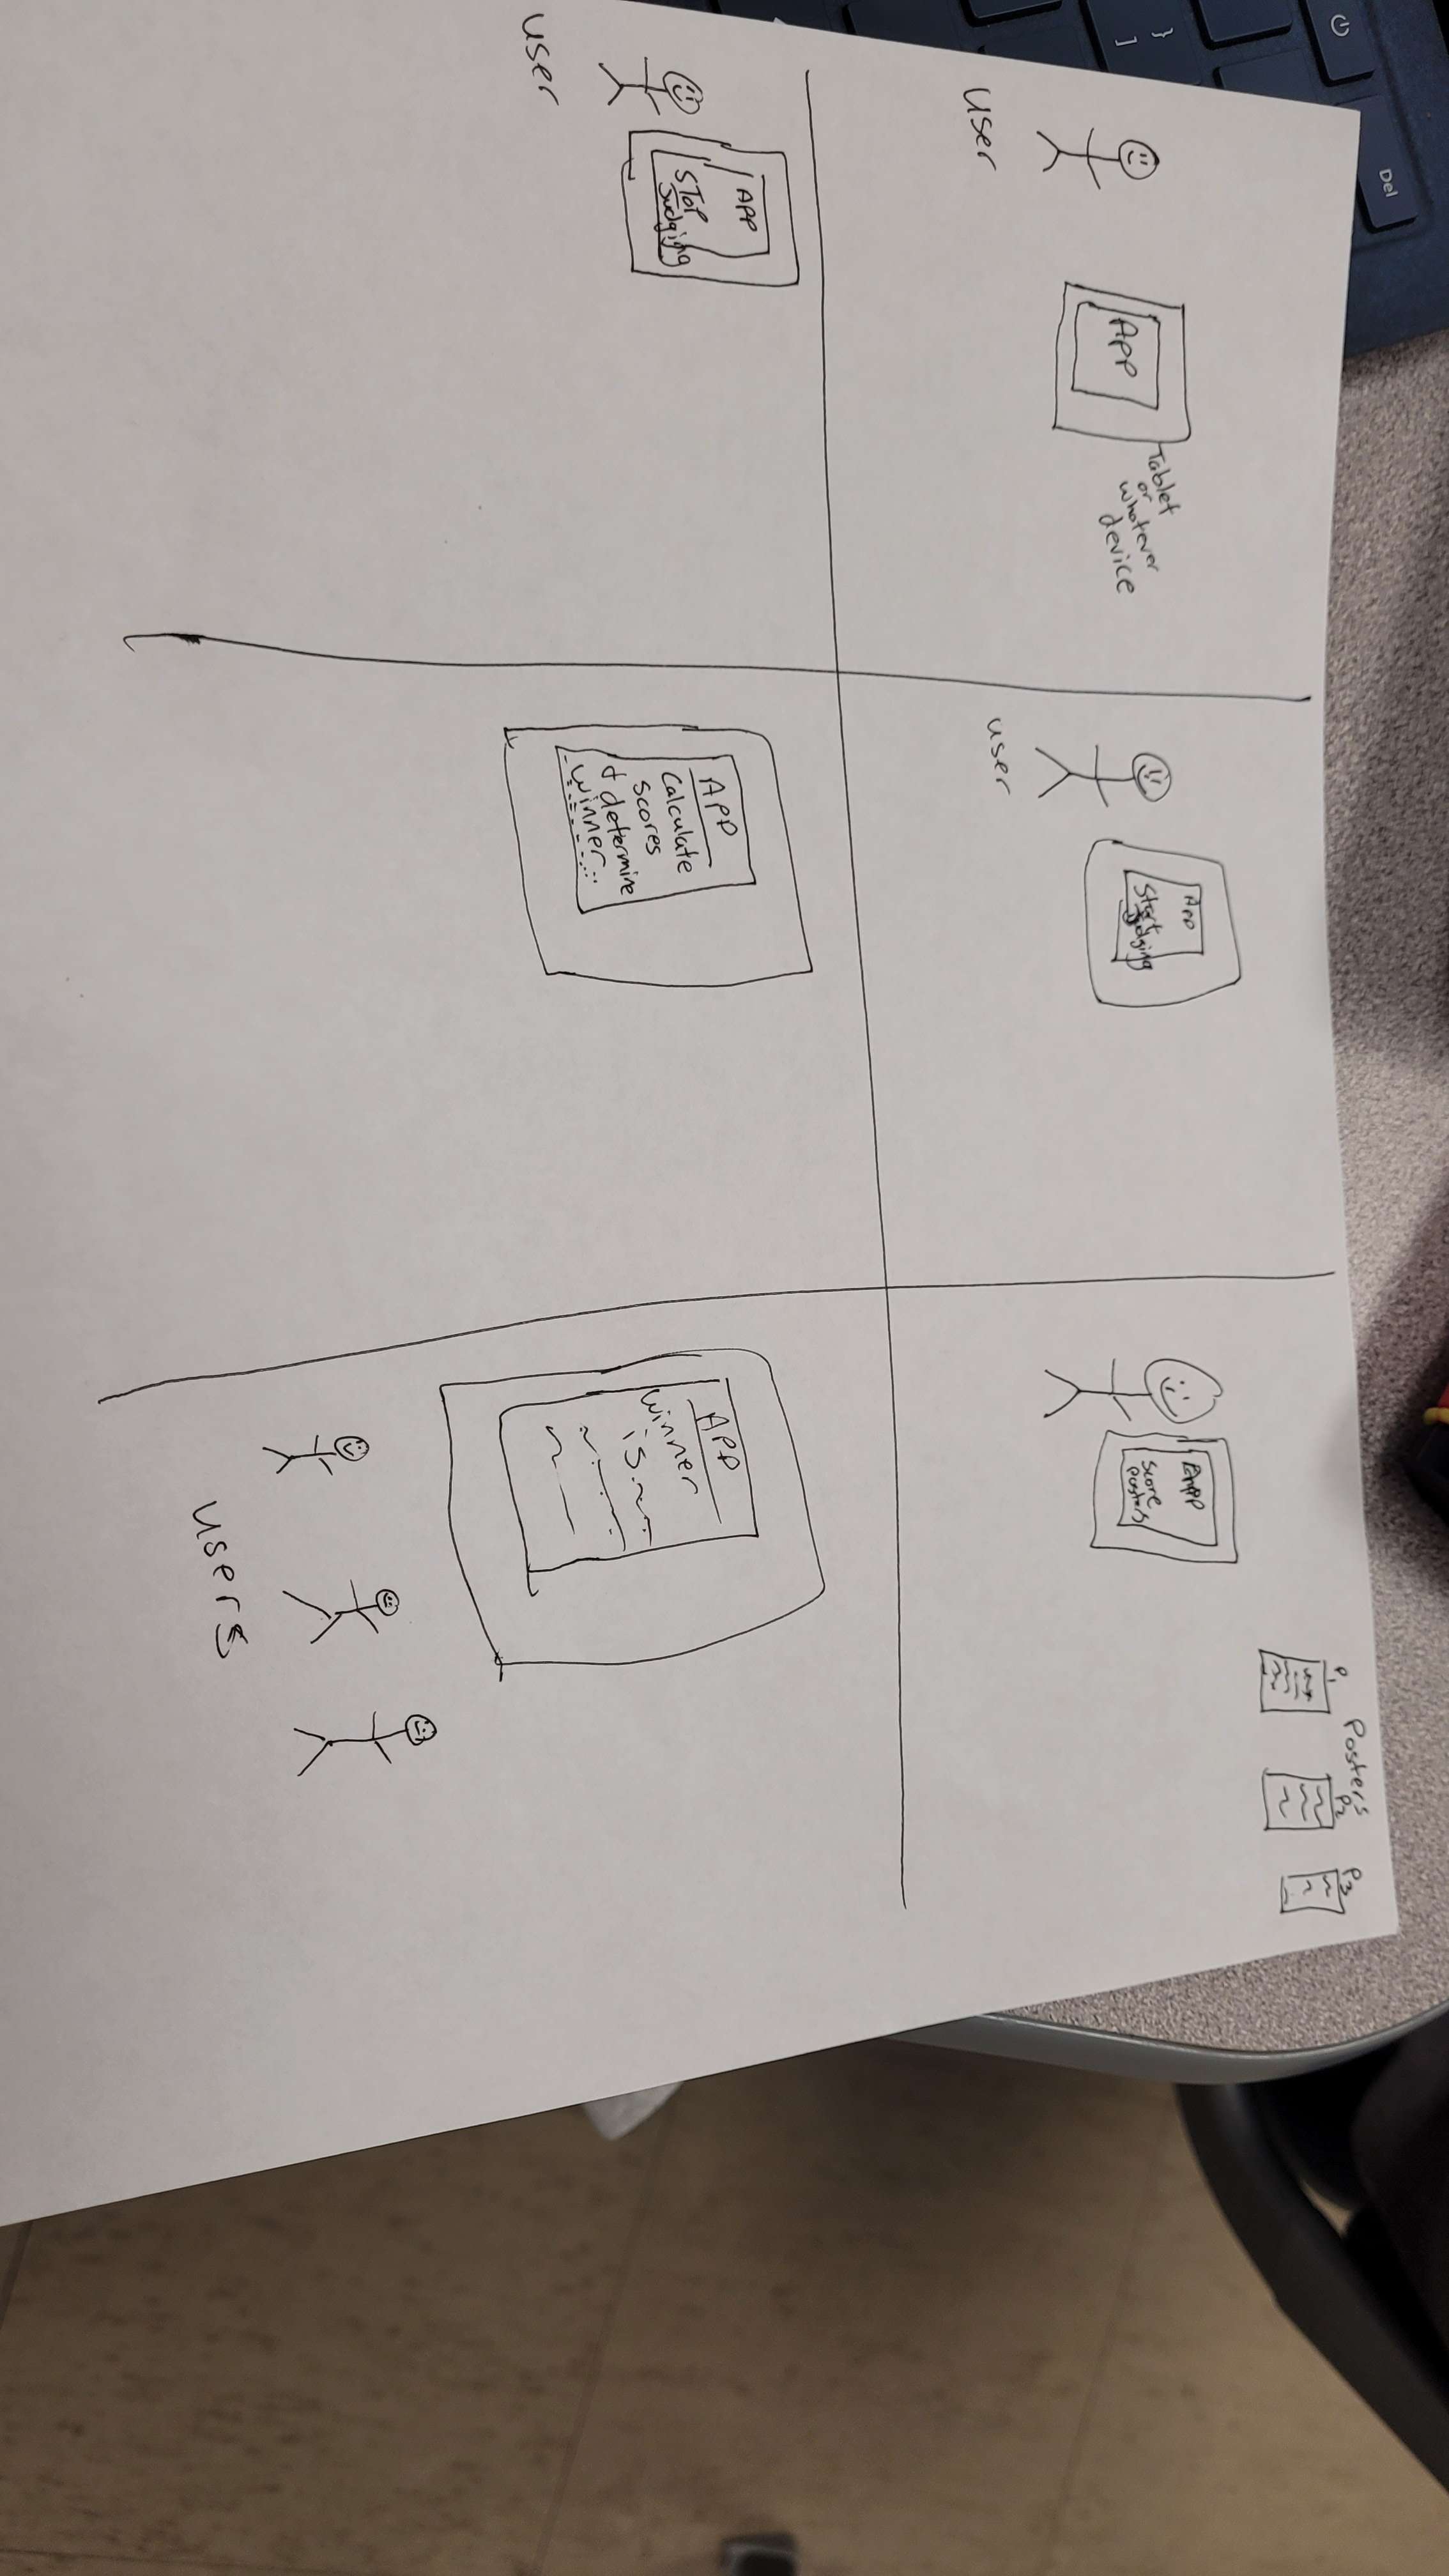 Del
}
]
APP
Tablet
or
whatever
device
user
APP
Start
Judging
user
Posters
P1
P2
P3
APP
Score
Posters
APP
STOP
Judging
user
APP
Calculate
Scores
& determine
winner...
APP
winner
is
users